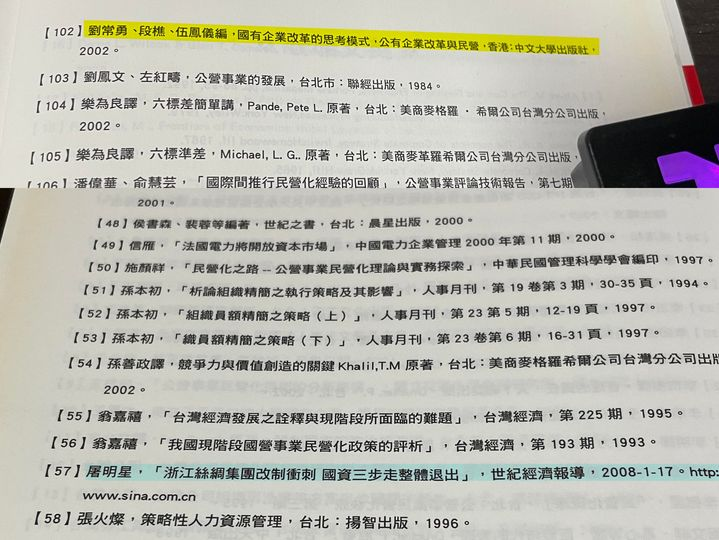 【102】劉常勇、段樵、伍鳳儀編，國有企業改革的思考模式，公有企業改革與民營，香港：中文大學出版社，
2002。
【103】劉鳳文、左紅疇，公營事業的發展，台北市：聯經出版，1984。
【104】樂為良譯，六標差簡單講，Pande, Pete L. 原著，台北：美商麥格羅 · 希爾公司台灣分公司出版，
2002。
【105】樂為良譯，六標準差，Michael, L. G.. 原著，台北：美商麥革羅希爾公司台灣分公司出版，
【106】潘偉華、俞慧芸，「國際間推行民營化經驗的回顧」，公營事業評論技術報告，第七期
2001。
【48】侯書森、裴蓉等編著，世紀之書，台北：晨星出版，2000。
【49】信雁，「法國電力將開放資本市場」，中國電力企業管理 2000 年第 11 期，2000。
【50】施顏祥，「民營化之路 -- 公營事業民營化理論與實務探索」，中華民國管理科學學會編印，1997。
【51】孫本初，「析論組織精簡之執行策略及其影響」，人事月刊，第 19 卷第 3 期，30-35 頁，1994。
【52】孫本初，「組織員額精簡之策略（上）」，人事月刊，第 23 第 5 期，12-19 頁，1997。
【53】孫本初，「織員額精簡之策略（下）」，人事月刊，第 23 卷第 6 期，16-31 頁，1997。
【54】孫善政譯，競爭力與價值創造的關鍵 Khalil,T.M 原著，台北：美商麥格羅希爾公司台灣分公司出版
2002。
【55】翁嘉禧，「台灣經濟發展之詮釋與現階段所面臨的難題」，台灣經濟，第 225 期，1995。
【56】翁嘉禧，「我國現階段國營事業民營化政策的評析」，台灣經濟，第 193 期，1993。
【57】屠明星，「浙江絲綢集團改制衝刺 國資三步走整體退出」，世紀經濟報導，2008-1-17。http:
www.sina.com.cn
【58】張火燦，策略性人力資源管理，台北：揚智出版，1996。